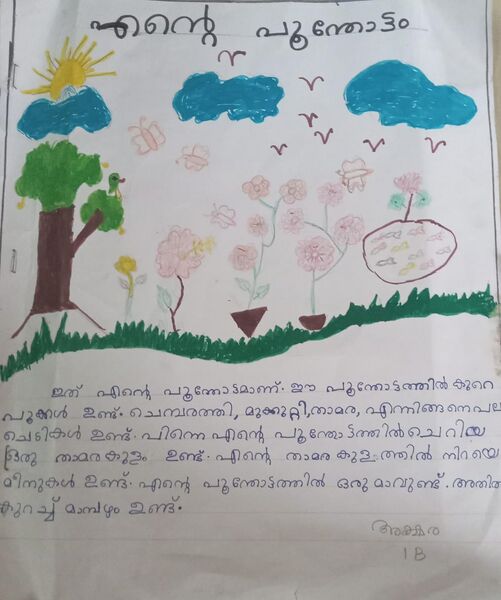 എന്റെ പൂന്തോട്ടം
ഇത് എന്റെ പൂന്തോട്ടമാണ്. ഈ പൂന്തോട്ടത്തിൽ കുറെ
പൂക്കൾ ഉണ്ട്. ചെമ്പരത്തി, മുക്കുറ്റി, താമര, എന്നിങ്ങനെ പല
ചെടികൾ ഉണ്ട്. പിന്നെ എന്റെ പൂന്തോട്ടത്തിൽ ചെറിയ
ഒരു താമരകുളം ഉണ്ട്. എന്റെ താമരകുളത്തിൽ നിറയെ
മീനുകൾ ഉണ്ട്. എന്റെ പൂന്തോട്ടത്തിൽ ഒരു മാവുണ്ട്. അതിൽ
കുറച്ച് മാമ്പഴം ഉണ്ട്.
അക്ഷര
1B